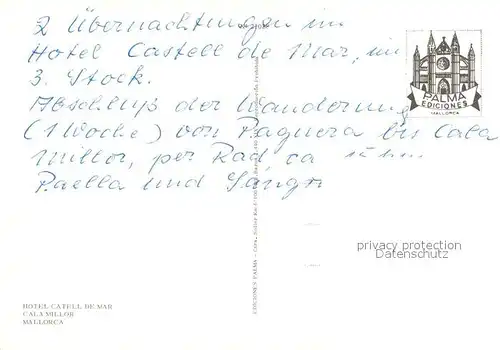 2 Übernachtungen im
Hotel Castell de Mar, im
3. Stock.
Abschluß der Wanderung
(1 Woche) von Paguera bis Cala
Millor, per Rad, ca
Paella und
PALMA
EDICIONES
MALLORCA
EDICIONES PALMA
privacy protection
Datenschutz
HOTEL CATELL DE MAR
CALA MILLOR
MALLORCA